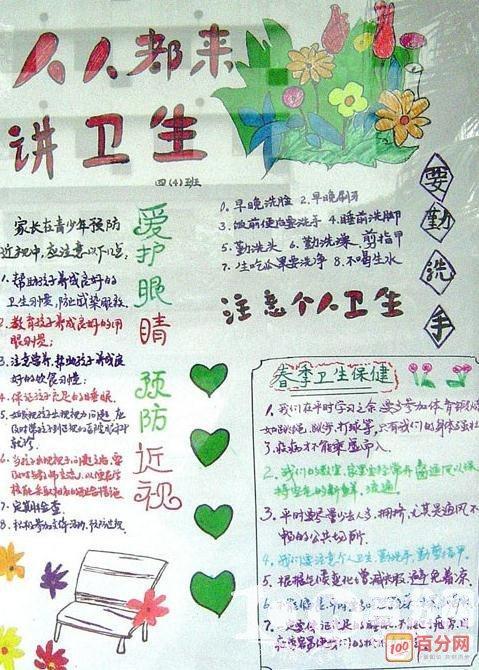 人人都来
讲卫生
四(4)班
家长在青少年预防
近视中,应注意以下几点:
1.帮助孩子养成良好的
卫生习惯,防止
2.教育孩子养成良好的用
眼习惯;
3.注意营养,帮助孩子养成良
好的饮食习惯;
4.保证孩子充足的睡眠
5.如发现孩子出现视力问题,应
及时带孩子到正规的医院
6.当孩子出现视力问题之后,要
及时与教师
7.定期检查
8.
爱护眼睛
预防近视
1.早晚洗脸 2.早晚刷牙
3.饭前便后要洗手 4.睡前洗脚
5.勤洗头 6.勤洗澡、剪指甲
7.生吃瓜果要洗净 8.不喝生水
要勤洗手
注意个人卫生
春季卫生保健
1.我们在平时学习之余要多参加体育
如跳绳、跑步、打球等,只有我们的身体
疾病才不能乘虚而入
2.我们的教室、家里要经常开窗通风以保
持空气的新鲜、流通
3.平时要尽量少去人多、拥挤,尤其是通风不
畅的公共场所.
4.我们要注意个人卫生,勤洗手,勤剪指甲.
5.根据气候变化增减衣服,避免着凉.
6.
7.
100 百分网